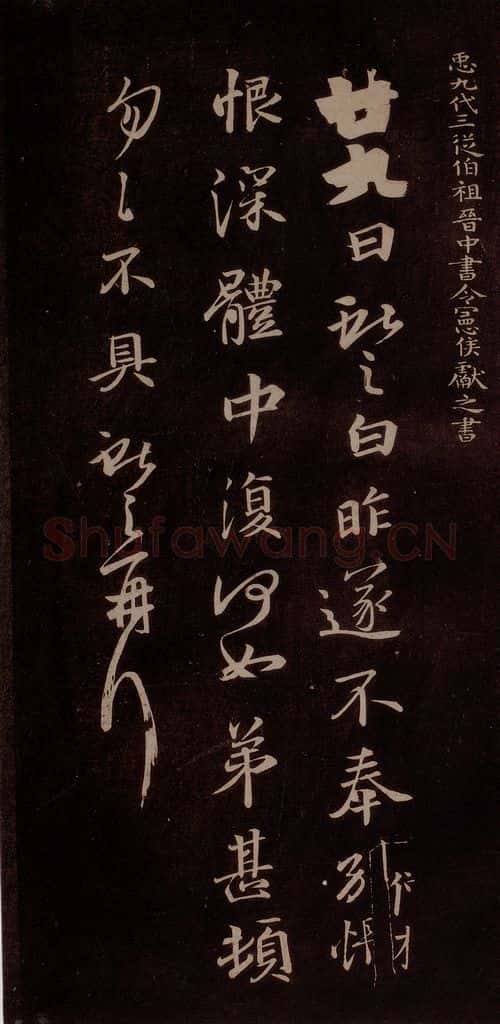 𢘑九代三從伯祖晉中書令憲侯獻之書
廿九日獻之白昨遂不奉別悵
恨深體中復何如弟甚頓
勿〻不具獻之再拜
Shufawang.CN